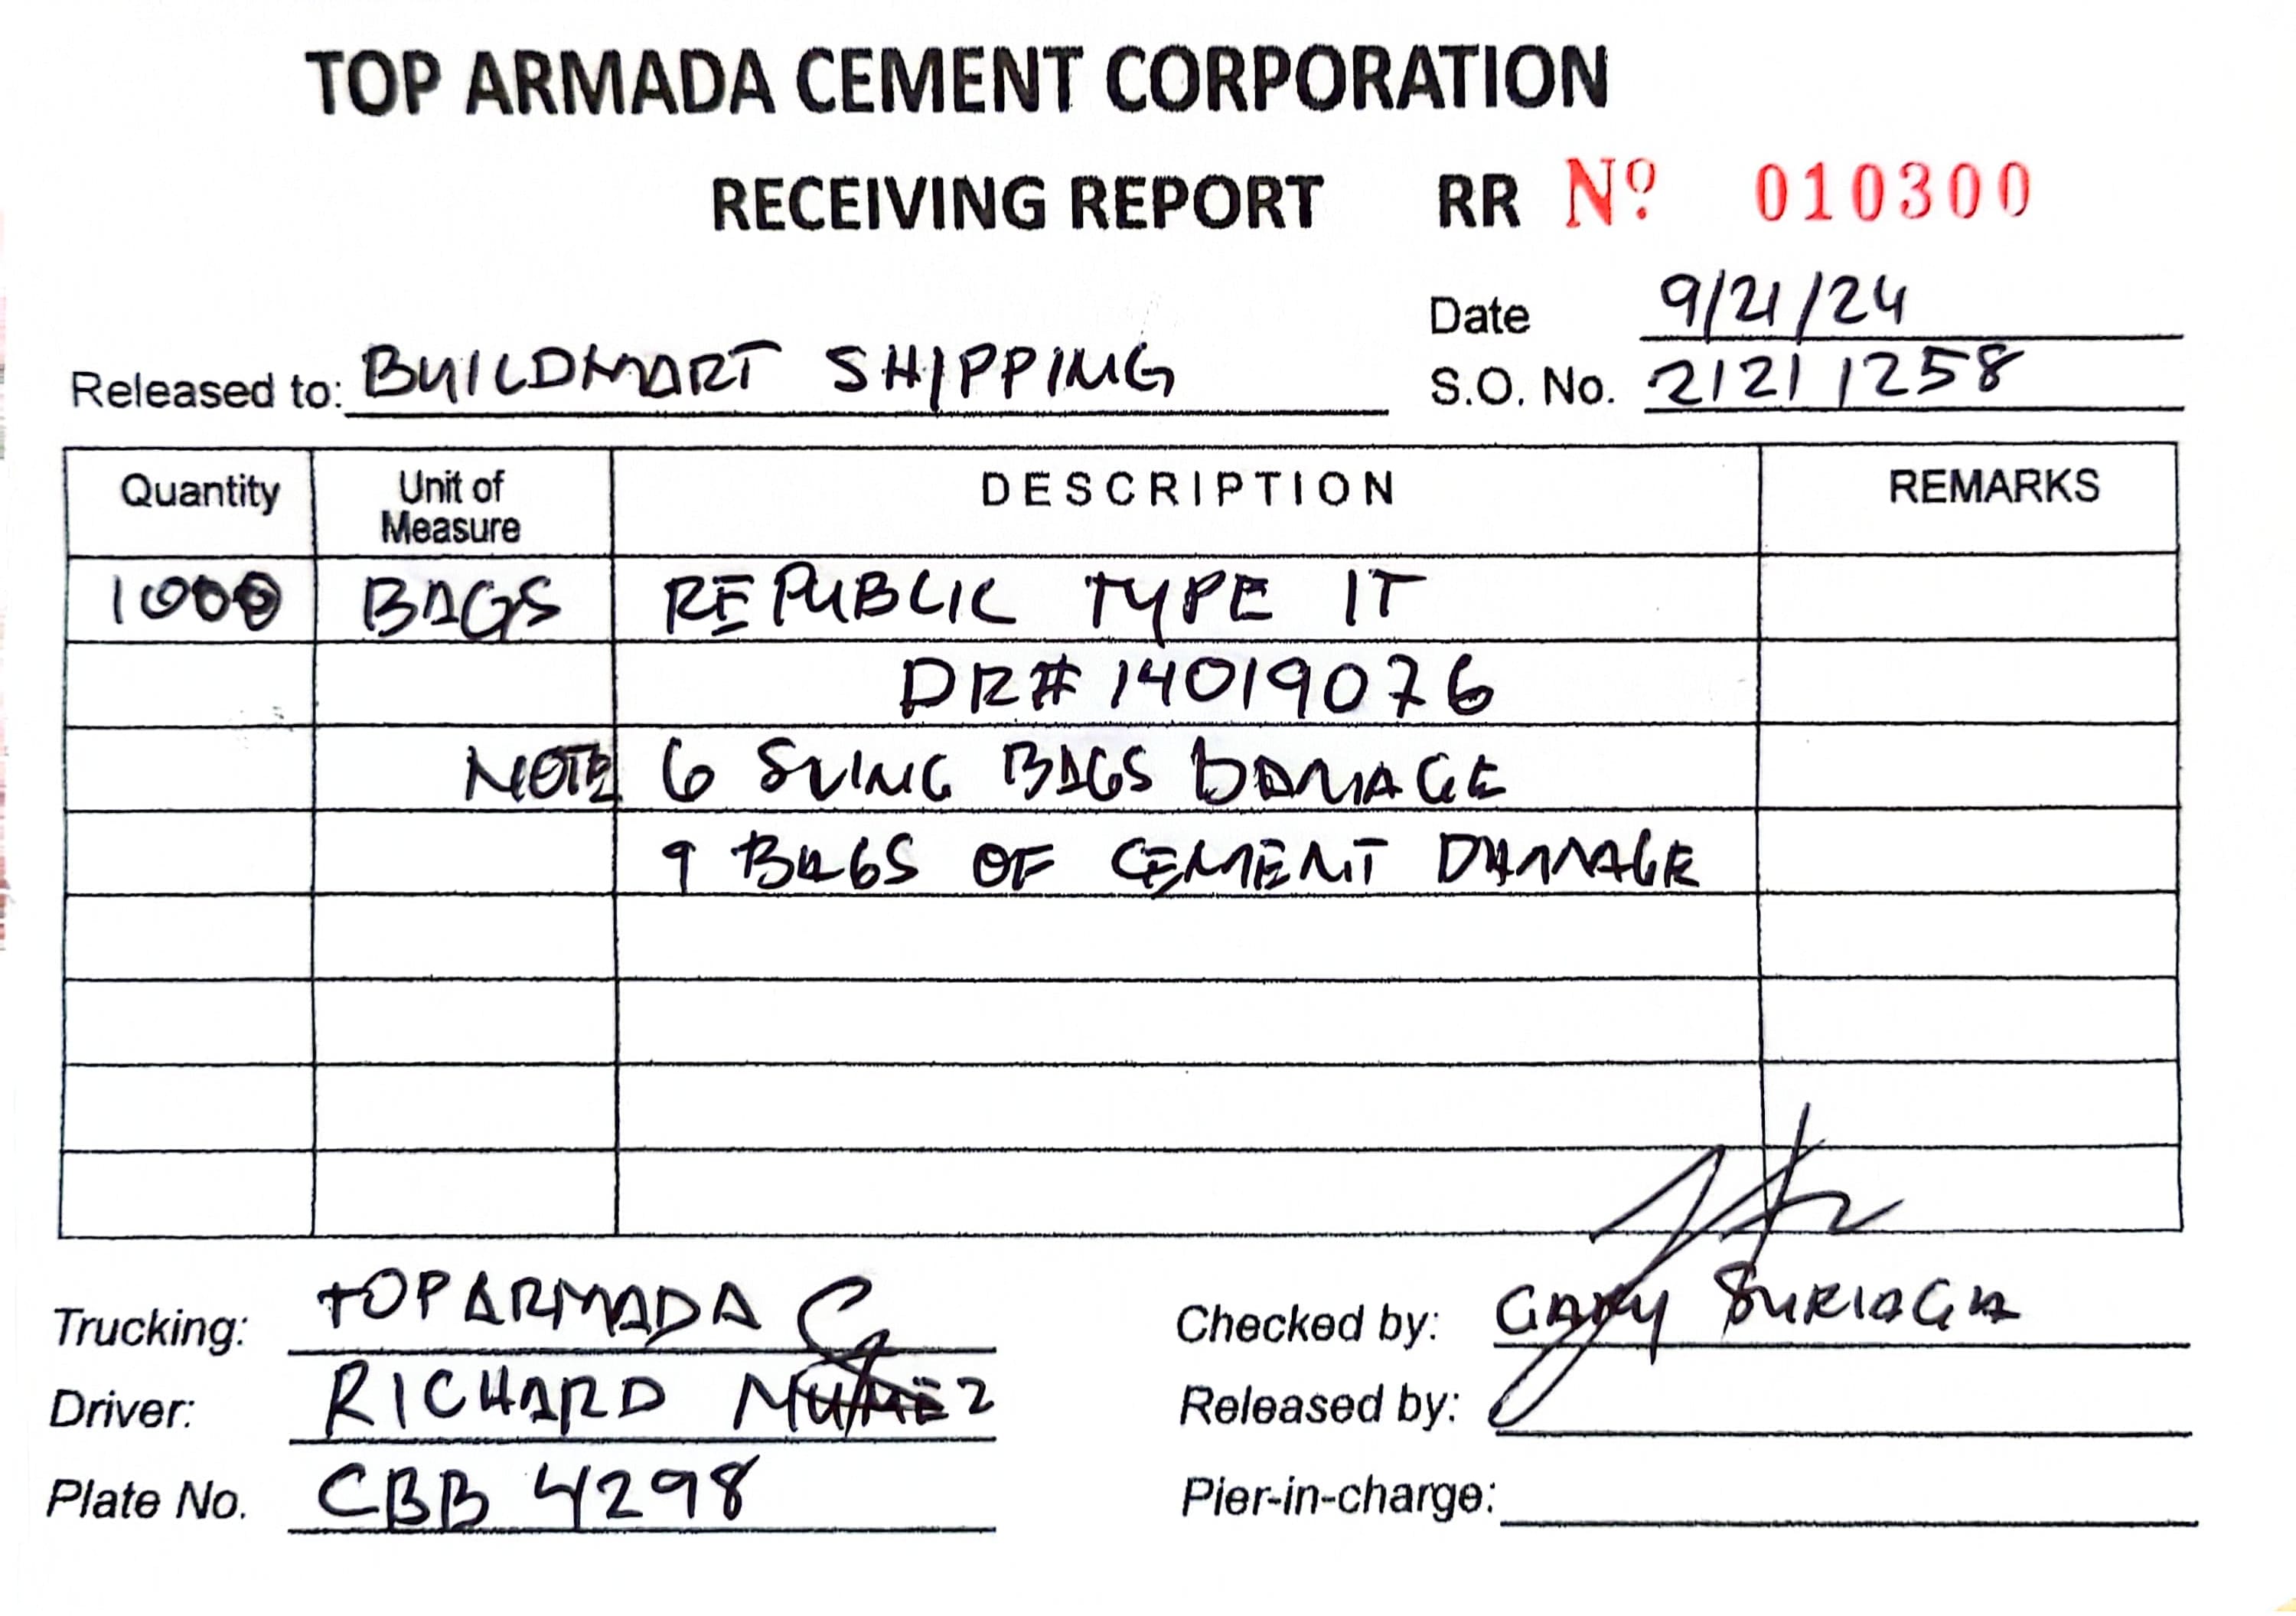 TOP ARMADA CEMENT CORPORATION
RECEIVING REPORT RR Nº 010300
Date 9/21/24
Released to: BUILDMART SHIPPING S.O. No. 21211258
Quantity Unit of Measure DESCRIPTION REMARKS
1000 BAGS REPUBLIC TYPE IT
DR# 14019076
NOTE 6 SLING BAGS DAMAGE
9 BAGS OF CEMENT DAMAGE
Trucking: TOP ARMADA Checked by: GARY SURIAGA
Driver: RICHARD NUÑEZ Released by:
Plate No. CBB 4298 Pier-in-charge: